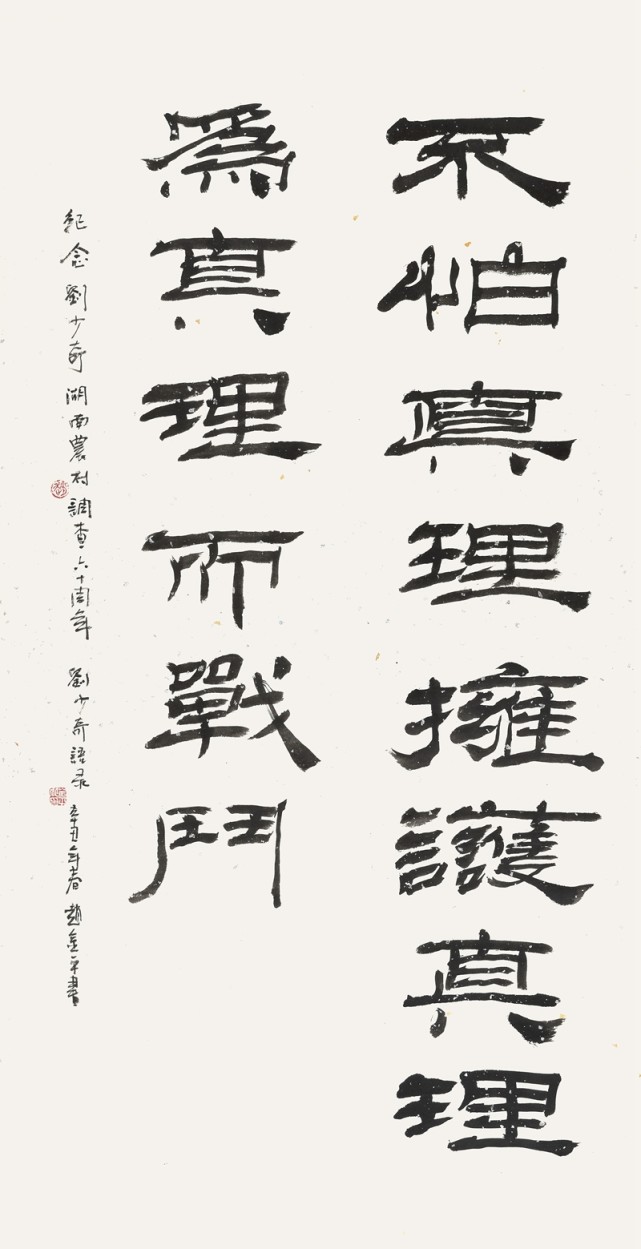 不怕真理擁護真理
為真理而戰鬥
紀念劉少奇湖南農村調查六十周年 劉少奇語录 辛丑年春 趙金平書